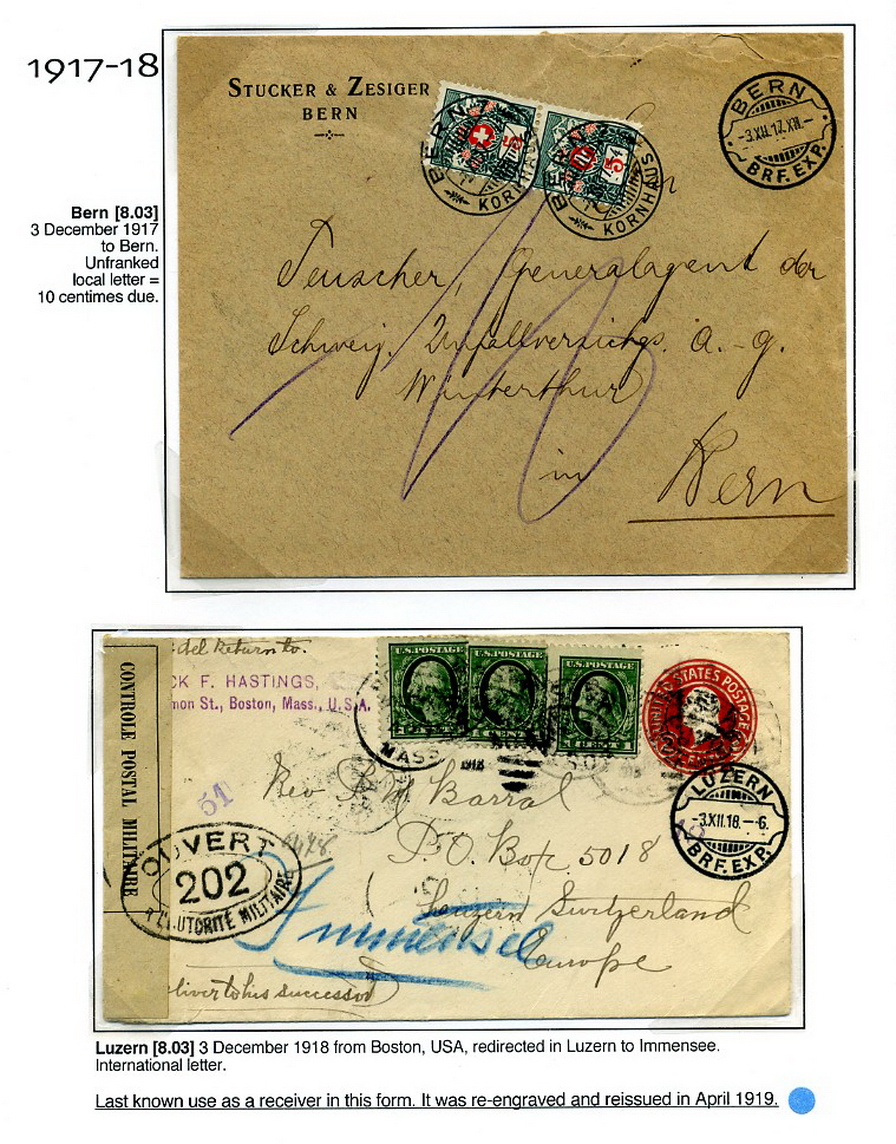 1917-18
STUCKER & ZESIGER
BERN
BERN
KORNHAUS
5
BERN
KORNHAUS
5
BERN
-3.XII.17. XII.-
BRF. EXP.
Bern [8.03]
3 December 1917
to Bern.
Unfranked
local letter =
10 centimes due.
Teuscher, Generalagent der
Schweiz. Unfallversichgs. A.-G.
Winterthur
in
Bern
10
CONTROLE POSTAL MILITAIRE
del Return to.
CK F. HASTINGS,
mon St., Boston, Mass., U.S.A.
U.S. POSTAGE
U.S. POSTAGE
U.S. POSTAGE
UNITED STATES POSTAGE
MASS
1918
51
LUZERN
-3.XII.18.-6.
BRF. EXP.
Rev P. M Barral
P.O. Box 5018
Luzern Switzerland
Europe
Immensee
OUVERT
202
L'AUTORITÉ MILITAIRE
liver to his successor)
Luzern [8.03] 3 December 1918 from Boston, USA, redirected in Luzern to Immensee.
International letter.
Last known use as a receiver in this form. It was re-engraved and reissued in April 1919.